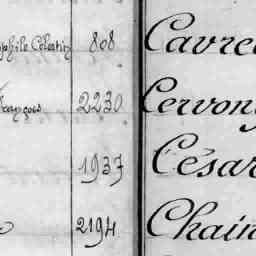 ophile Célestin 808 Cavre
François 2230 Cervon
1937 César
2194 Chain